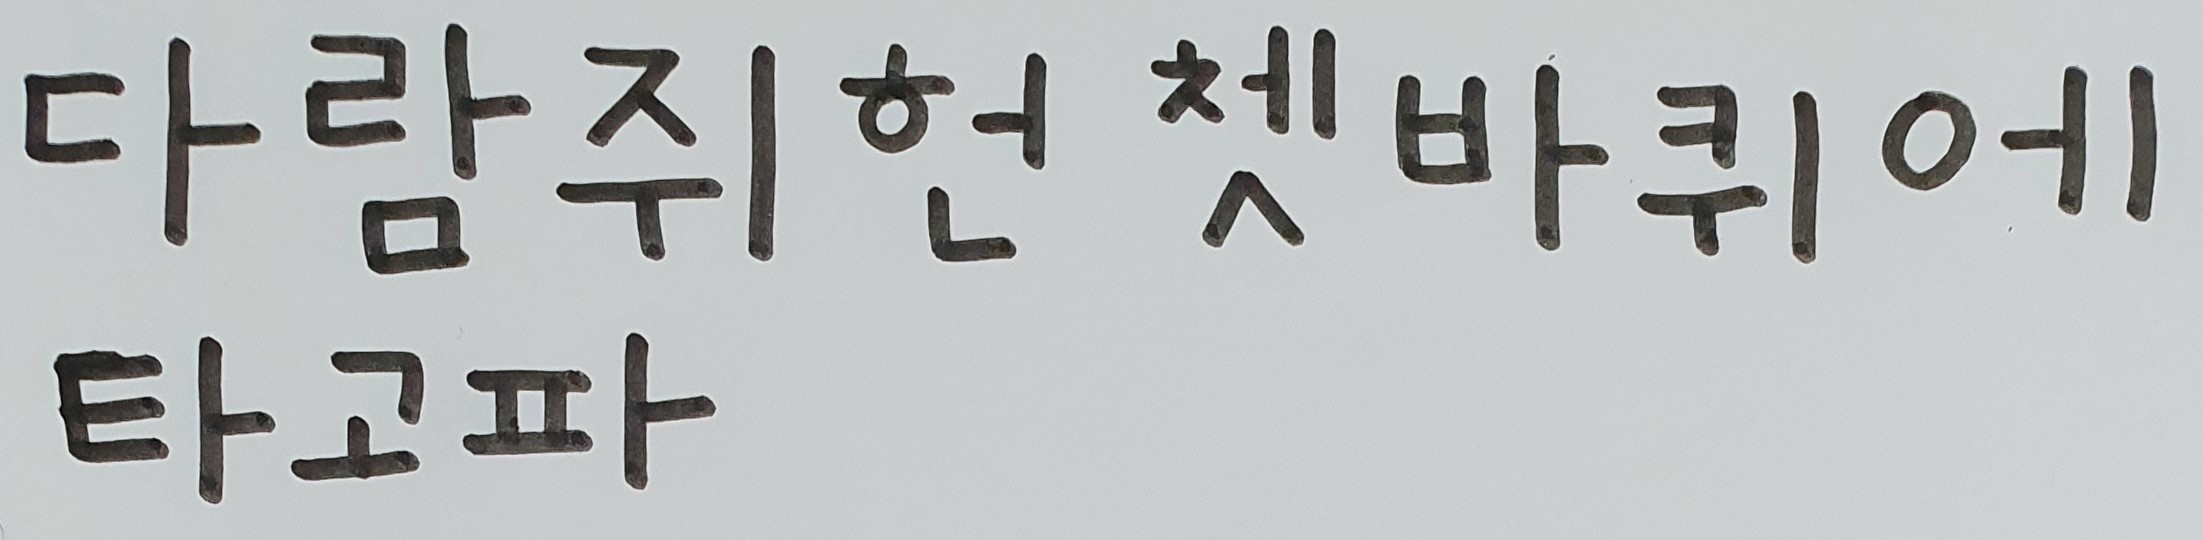 다람쥐 헌 쳇바퀴에
타고파